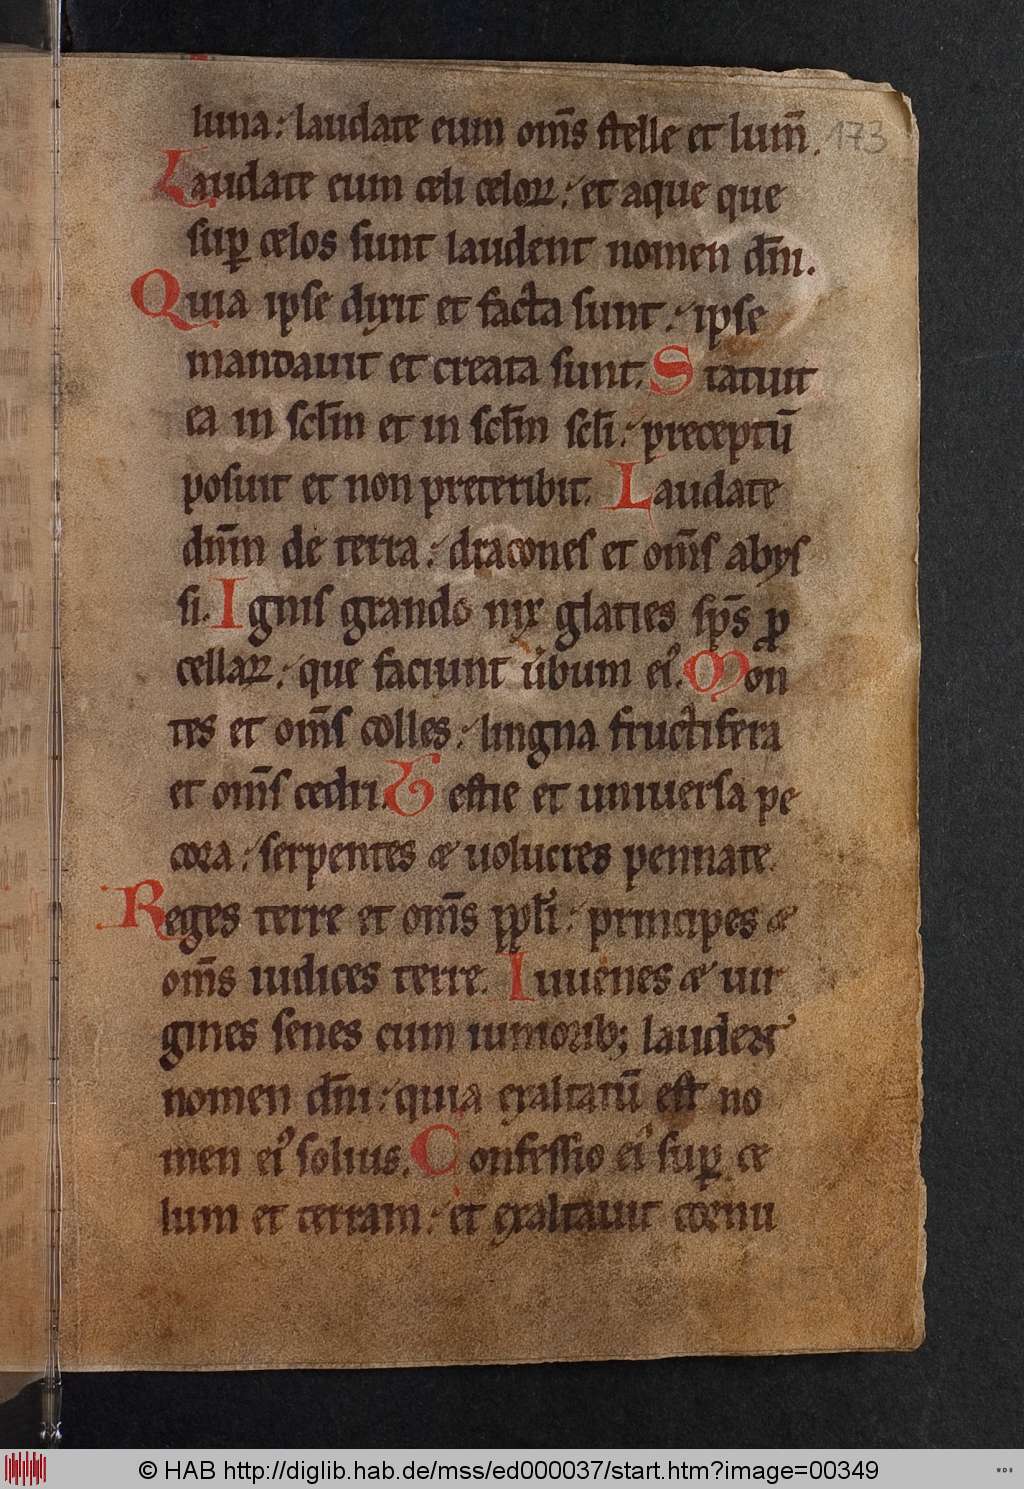 luna : laudate eum om̄s stelle et lum̄. 173
Laudate eum celi celoꝝ : et aque que
suꝑ celos sunt laudent nomen dn̄i.
Quia ipse dixit et facta sunt : ipse
mandauit et creata sunt. Statuit
ea in scl̄m et in scl̄m scl̄i : preceptū
posuit et non preteribit. Laudate
dn̄m de terra : dracones et om̄s abys
si. Ignis grando nix glacies sp̄s ꝓ
cellaꝝ : que faciunt u̅bum ei᷒. Mon
tes et om̄s colles : lingna fructifera
et om̄s cedri. Bestie et uniuersa pe
cora : serpentes æ uolucres pennate.
Reges terre et om̄s ppl̄i : principes æ
om̄s iudices terre. Iuuenes æ uir
gines senes cum iuniorib; laudent
nomen dn̄i : quia exaltatū est no
men ei᷒ solius. Confessio ei᷒ suꝑ ce
lum et terram : et exaltauit cornu
© HAB http://diglib.hab.de/mss/ed000037/start.htm?image=00349